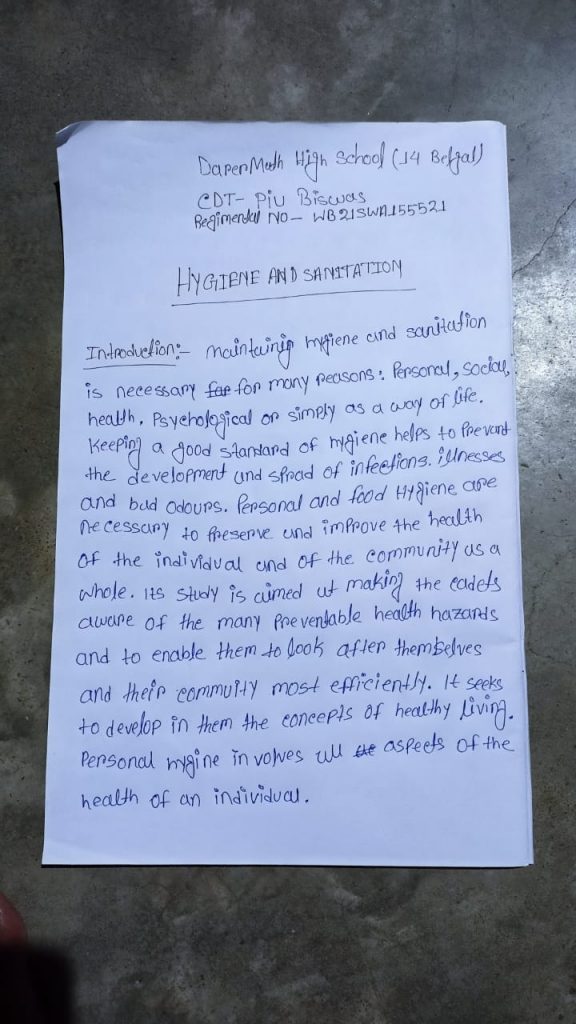 DarenMath High School (14 Bengal)
CDT- Piu Biswas
Regimental NO- WB21SWA155521
HYGIENE AND SANITATION
Introduction:- maintaining hygiene and sanitation
is necessary far for many reasons: Personal, social,
health, Psychological or simply as a way of life.
Keeping a good standard of hygiene helps to Prevant
the development and spread of infections. illnesses
and bad odours. Personal and food Hygiene are
necessary to Preserve and improve the health
of the individual and of the community as a
whole. Its study is aimed at making the cadets
aware of the many Preventable health hazards
and to enable them to look after themselves
and their commuity most efficiently. It seeks
to develop in them the concepts of healthy Living.
Personal hygine involves all the aspects of the
health of an individual.